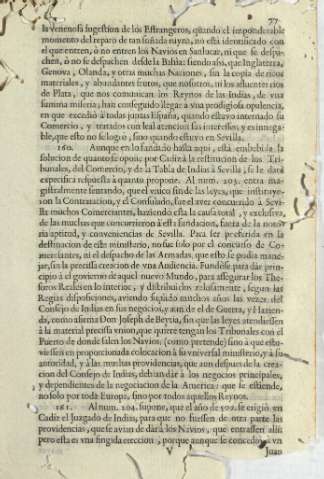 77
la venenosa sugestion de los Estrangeros, quando el imponderable
momento del reparo de tan sañada rayna, no està identificado con
el que entren, ò no entren los Navios en Sanlucar, ni que se despa-
chen, ò no se despachen desde la Bahia: siendo assi, que Inglaterra,
Genova, Olanda, y otras muchas Naciones, sin la copia de ricos
materiales, y abundantes frutos, que nosotros, ni los afluentes rios
de Plata, que nos comunican los Reynos de las Indias, de una
summa miseria, han conseguido llegar à una prodigiosa opulencia,
en que excediò à todas juntas España, quando estuvo internado su
Comercio, y tratados con leal atencion sus interesses, y es innega-
ble, que esto no se logró, sino quando estuvo en Sevilla.
160. Aunque en lo fundado hasta aqui, està embebida la
solucion de quanto se opone por Cadiz à la restitucion de los Tri-
bunales, del Comercio, y de la Tabla de Indias à Sevilla, se le darà
especifica respuesta à quanto propone. Al num. 203. entra ma-
gistralmente sentando, que el unico fin de las leyes, que instituye-
ron la Contratacion, y el Consulado, fue el aver concurrido à Sevi-
lla muchos Comerciantes, haziendo esta la causa total, y exclusiva,
de las muchas que concurrieron à esta fundacion, fuera de la noto-
ria aptitud, y conveniencias de Sevilla. Para ser preferida en la
destinacion de este ministerio, no fue solo por el concurso de Co-
merciantes, ni el despacho de las Armadas, que esto se podia mane-
jar, sin la precisa creacion de una Audiencia. Fundóse para dar prin-
cipio à el govierno de aquel nuevo Mundo, para assegurar los The-
soros Reales en lo interior, y distribuirlos reglados, segun las
Regias disposiciones, aviendo seguido muchos años las vezes del
Consejo de Indias en sus negocios, y aun de el de Guerra, y Hazien-
da, como afirma Don Joseph de Beytia, sin que las leyes atendiessen
à la material precisa union, que quiere tengan los Tribunales con el
Puerto de donde salen los Navios, (como pretende) sino à que estu-
viessen en proporcionada colocacion à su universal ministerio, y à su
autoridad, y à las muchas providencias, que aun despues de la crea-
cion del Consejo de Indias, debian dar à los negocios principales,
y dependientes de la negociacion de la America: que se estiende,
no solo por toda Europa, sino por todos aquellos Reynos.
161. Al num. 204. supone, que el año de 509. se erigiò en
Cadiz el Juzgado de Indias, para que no fuessen de otra parte las
providencias, que se avian de dar à los Navios, que entrassen alli:
pero esta es una fingida ereccion, porque aunque se concediò à un
V Juan